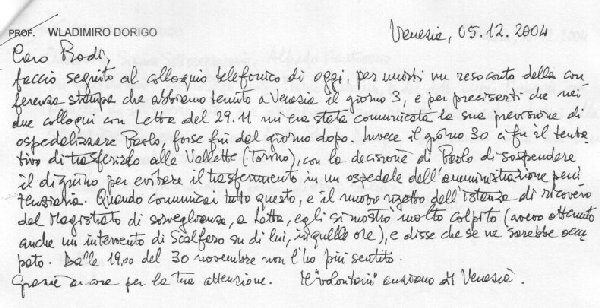 PROF. WLADIMIRO DORIGO
Venezia, 05.12.2004
Caro Prodi,
faccio seguito al colloquio telefonico di oggi, per unirti un resoconto della con
ferenza stampa che abbiamo tenuto a Venezia il giorno 3, e per precisarti che nei
due colloqui con Letta del 29.11 mi era stata comunicata la sua previsione di
ospedalizzare Paolo, forse fin dal giorno dopo. Invece il giorno 30 ci fu il tenta
tivo di trasferirlo alle Vallette (Torino), con la decisione di Paolo di sospendere
il digiuno per evitare il trasferimento in un ospedale dell'amministrazione peni
tenziaria. Quando comunicai tutto questo, e il nuovo rigetto dell'istanza di ricovero
del Magistrato di sorveglianza, a Letta, egli si mostrò molto colpito (avevo ottenuto
anche un intervento di Scalfaro su di lui, in quelle ore), e disse che se ne sarebbe occu
pato. Dalle 19,00 del 30 novembre non l'ho più sentito.
Grazie ancora per la tua attenzione. Il "volontario" anziano di Venezia.